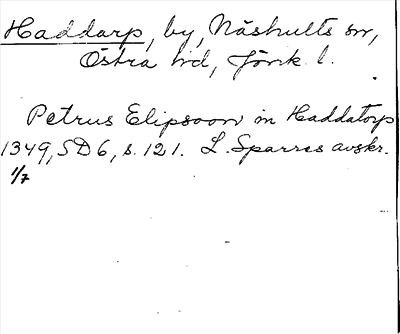 Haddarp, by, Näshults sn,
Östra hd, Jönk. l.
Petrus Elipsson in Haddatorp
1349, SD 6, s. 121. L. Sparres avskr.
1/7